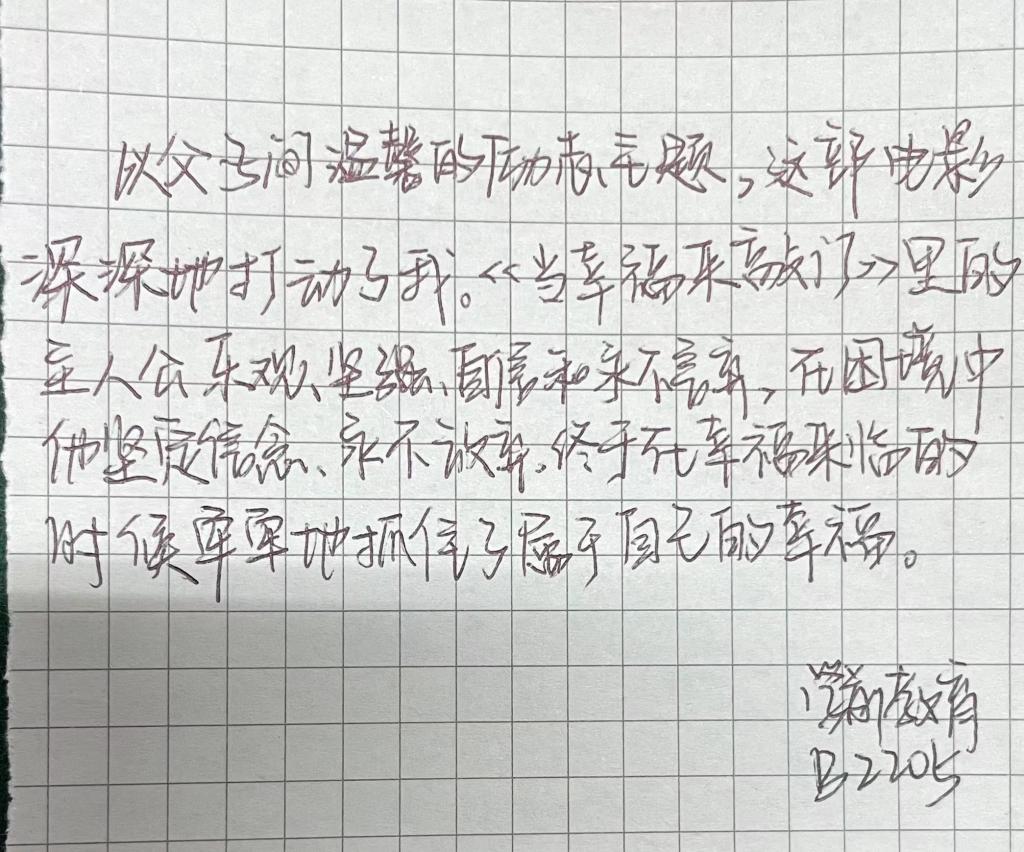 以父子间温馨的互动为主题，这部电影
深深地打动了我。《当幸福来敲门》里的
主人公乐观、坚强、自信和永不言弃，在困境中
他坚定信念、永不放弃，终于在幸福来临的
时候牢牢地抓住了属于自己的幸福。
学前教育
B2205